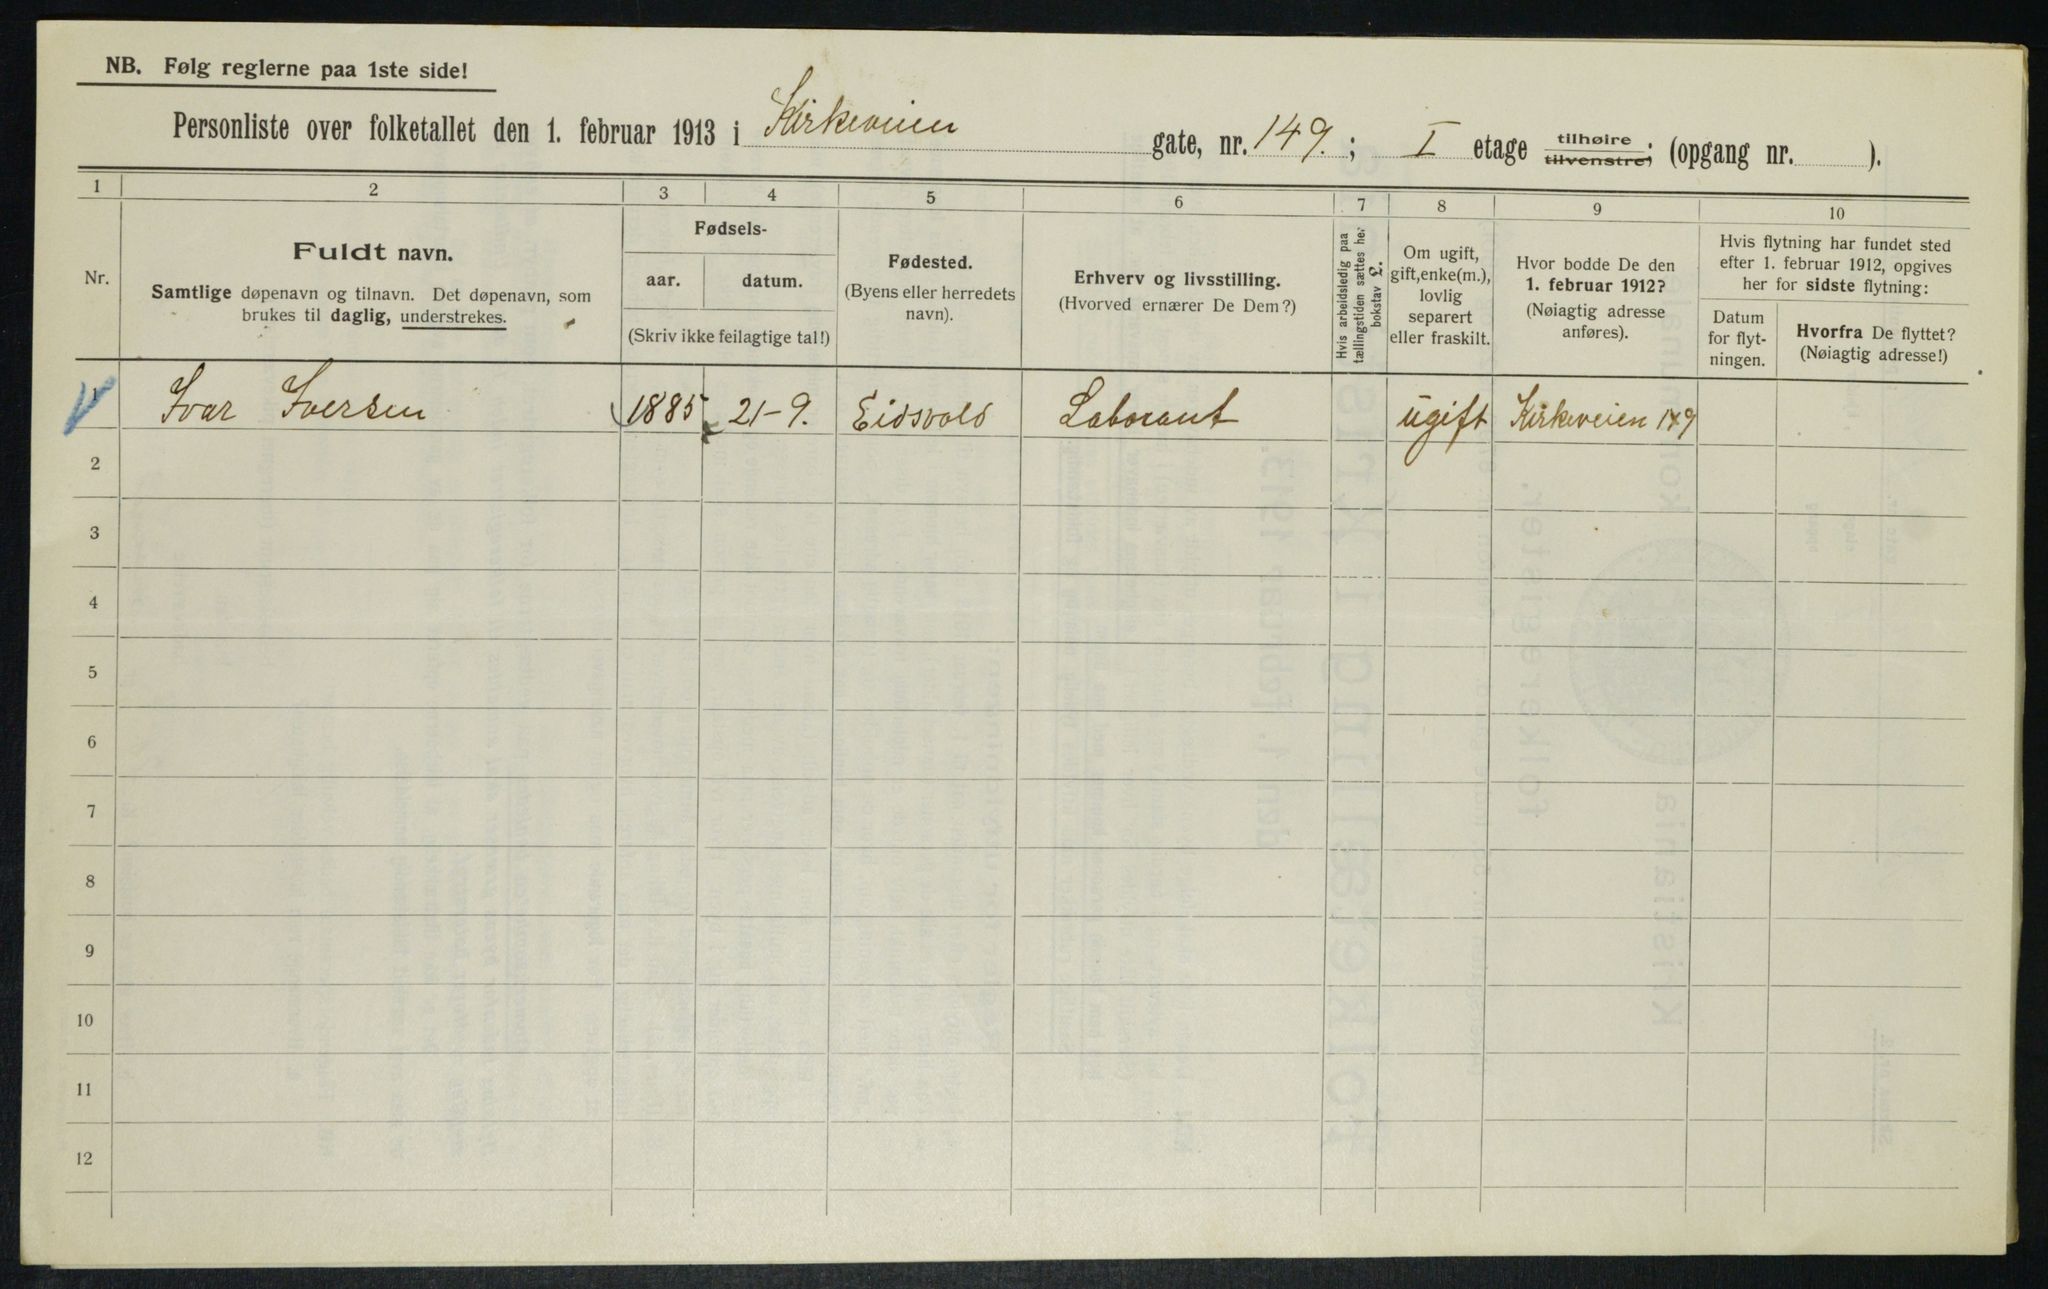 NB. Følg reglerne paa 1ste side!
Personliste over folketallet den 1. februar 1913 i Kirkeveien gate, nr. 149. ; I etage tilhøire. (opgang nr. ).
tilvenstre;
1 2 3 4 5 6 7 8 9 10
Nr.
Fuldt navn.
Samtlige døpenavn og tilnavn. Det døpenavn, som
brukes til daglig, understrekes.
Fødsels-
aar. datum.
(Skriv ikke feilagtige tal!)
Fødested.
(Byens eller herredets
navn).
Erhverv og livsstilling.
(Hvorved ernærer De Dem?)
Hvis arbeidsledig paa
tællingstiden sættes her
bokstav L.
Om ugift,
gift, enke(m.),
lovlig
separert
eller fraskilt.
Hvor bodde De den
1. februar 1912?
(Nøiagtig adresse
anføres).
Hvis flytning har fundet sted
efter 1. februar 1912, opgives
her for sidste flytning:
Datum
for flyt-
ningen.
Hvorfra De flyttet?
(Nøiagtig adresse!)
1 Ivar Iversen 1885 21-9. Eidsvold Laborant ugift Kirkeveien 149
2
3
4
5
6
7
8
9
10
11
12